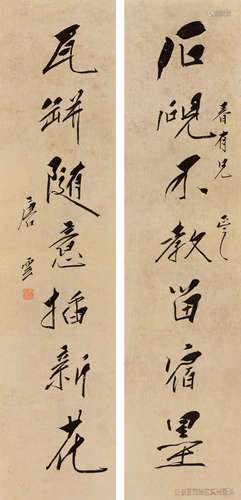 石砚不教留宿墨
春有兄正之
瓦瓶随意插新花
唐云